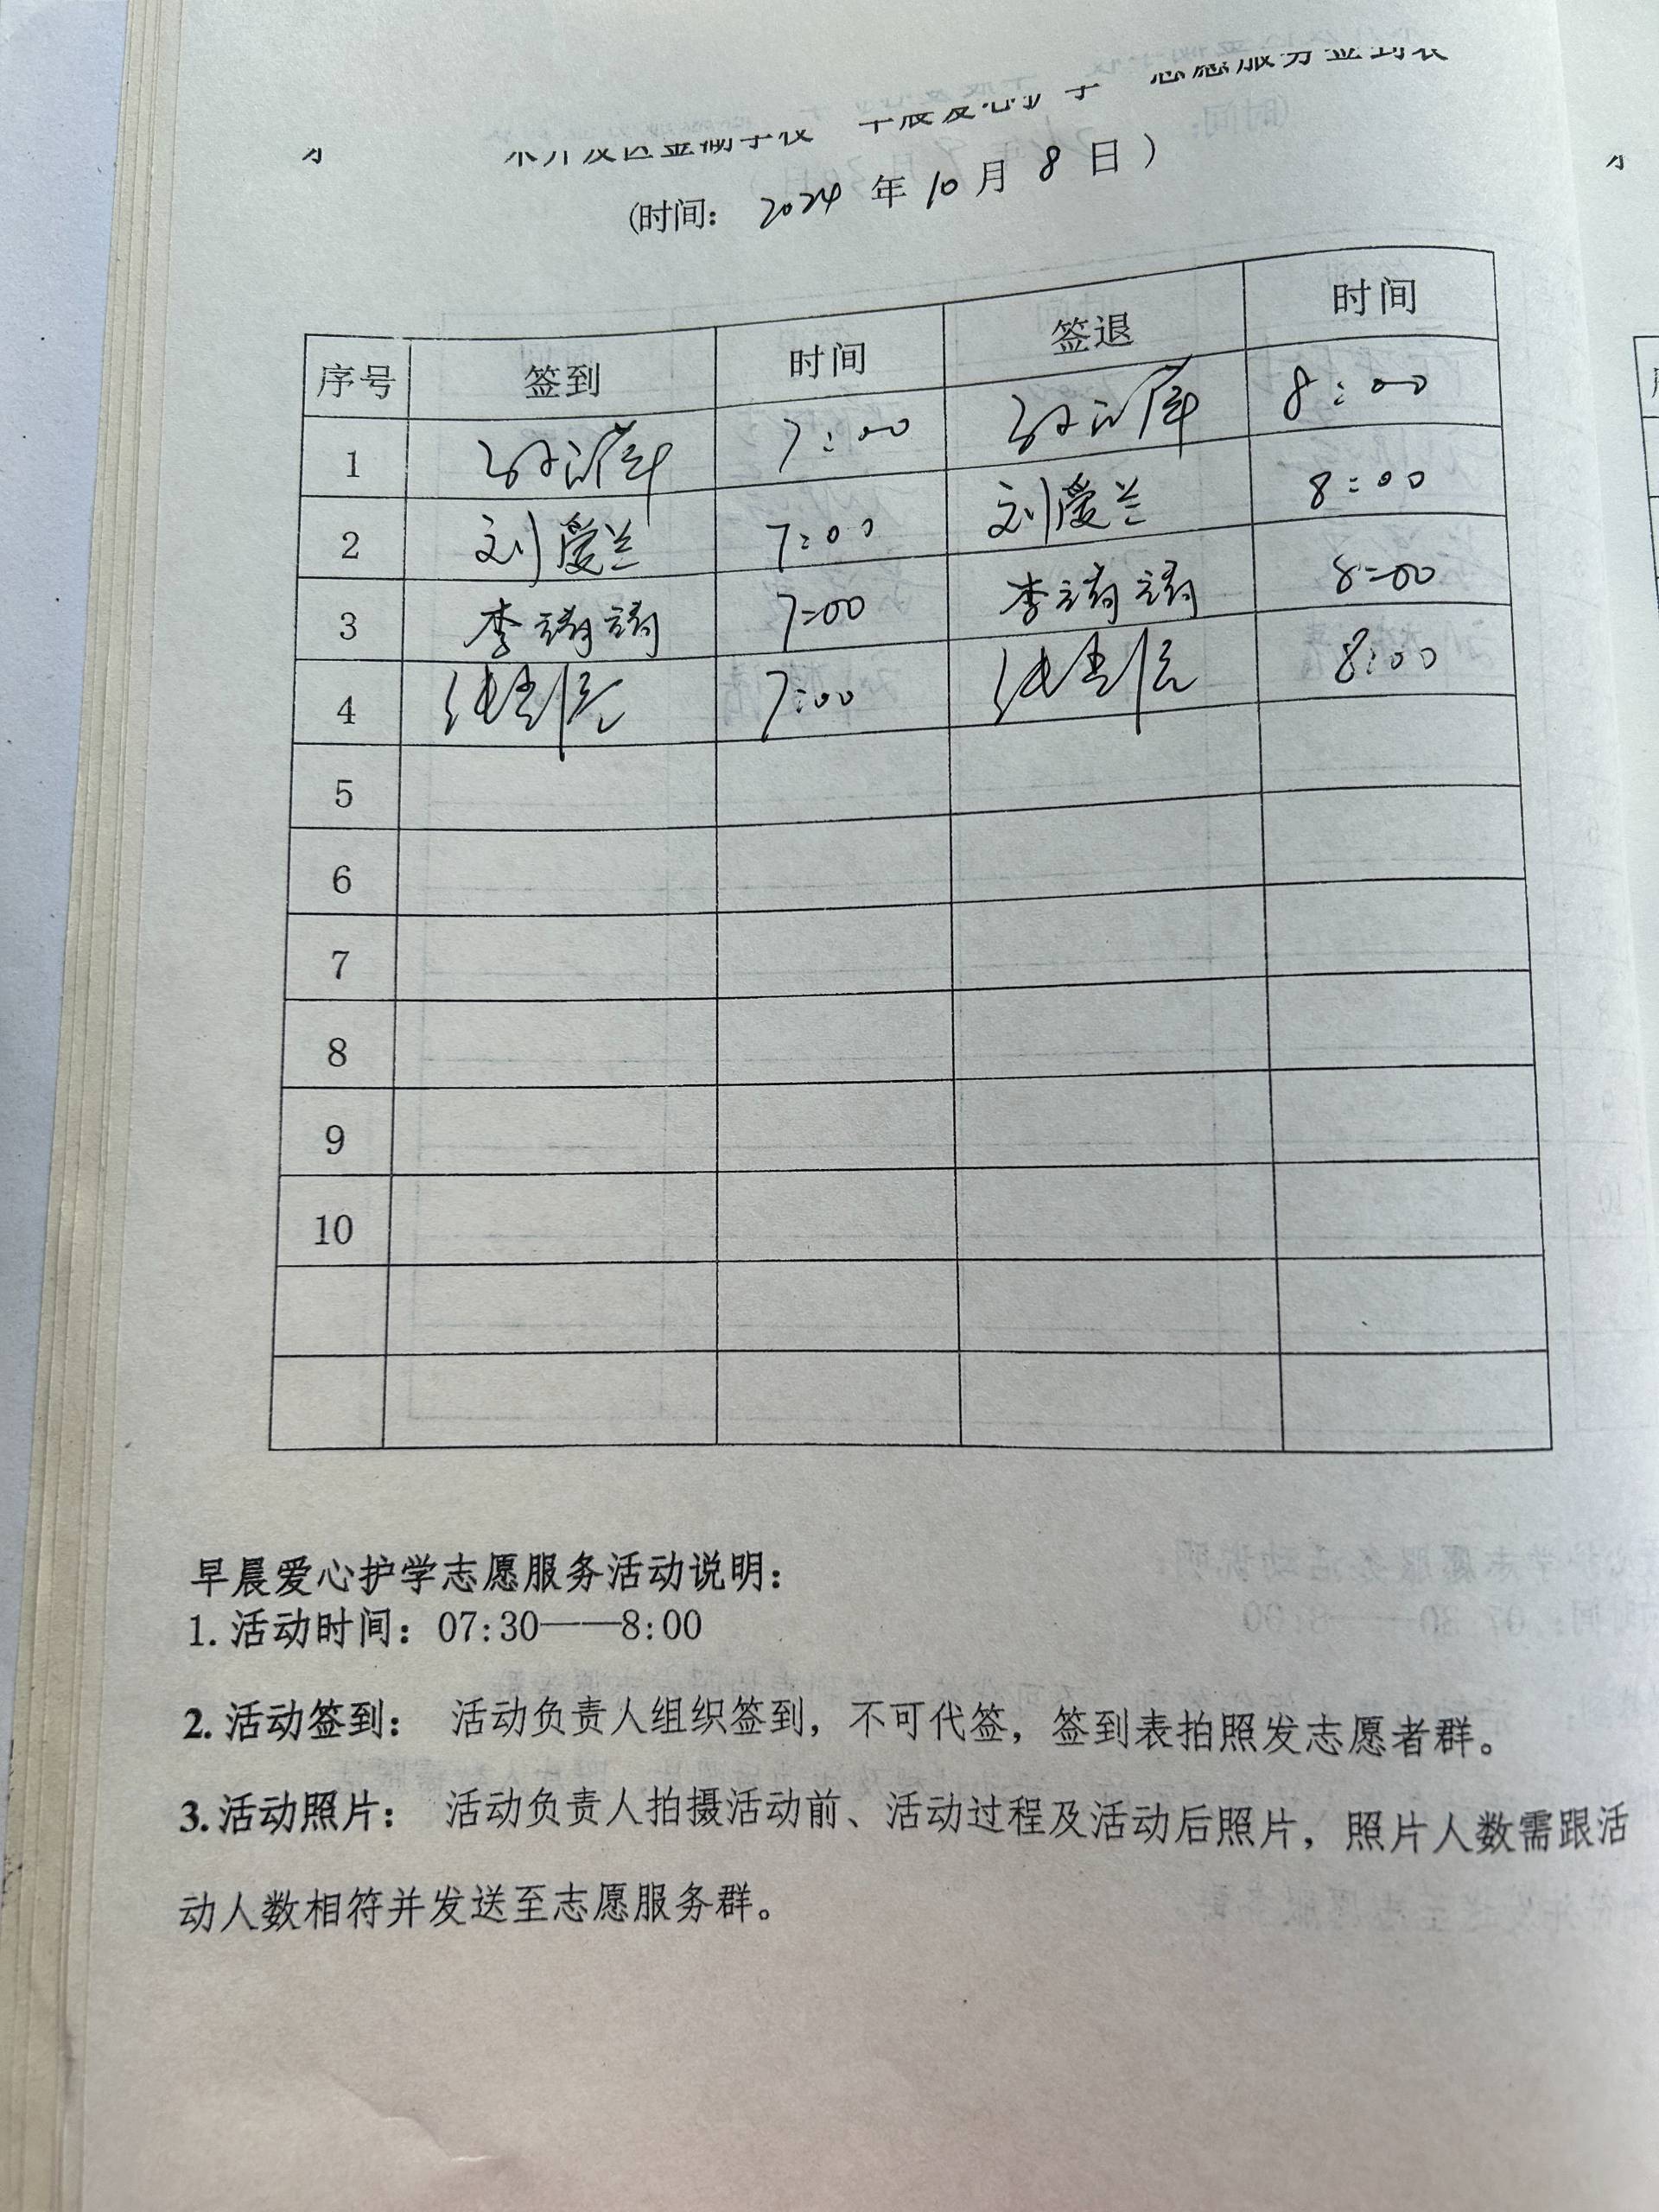 (时间: 2024 年 10 月 8 日)
序号 签到 时间 签退 时间
1 7:00 8:00
2 刘爱兰 7:00 刘爱兰 8:00
3 李 7:00 李 8:00
4 7:00 8:00
5
6
7
8
9
10
早晨爱心护学志愿服务活动说明：
1. 活动时间：07:30——8:00
2. 活动签到： 活动负责人组织签到，不可代签，签到表拍照发志愿者群。
3. 活动照片： 活动负责人拍摄活动前、活动过程及活动后照片，照片人数需跟活
动人数相符并发送至志愿服务群。